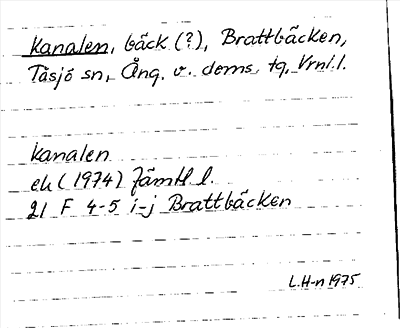 Kanalen, bäck (?), Brattbäcken,
Tåsjö sn, Ång. v. doms. tg, Vrnl. l.
Kanalen
ek (1974) Jämtl l.
21 F 4-5 i-j Brattbäcken
L.H-n 1975